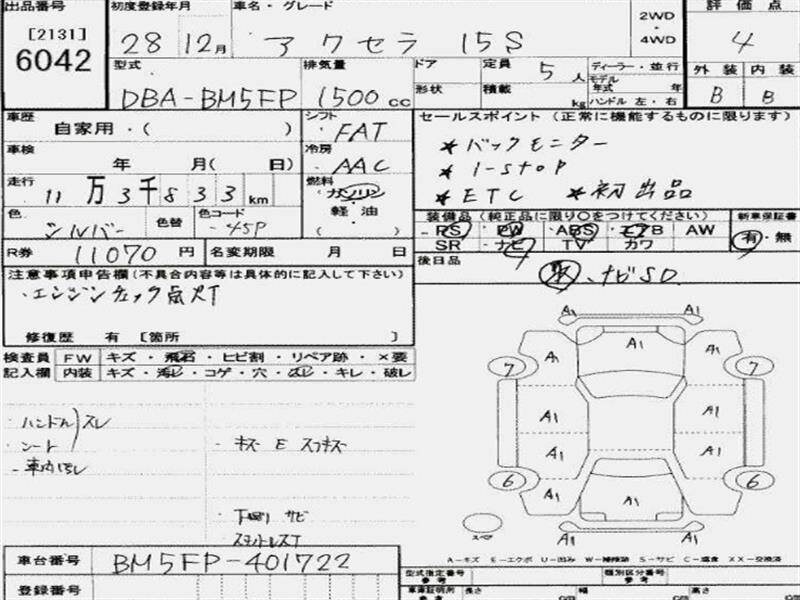 出品番号 初度登録年月 車名・グレード 2WD・4WD 評価点
[2131] 6042 28 12月 アクセラ 15S 4
型式 排気量 ドア 定員 5人 ディーラー・並行 外装 内装
DBA-BM5FP 1500cc 形状 積載 kg モデル年式 年 ハンドル 左・右 B B
車歴 自家用・( ) シフト FAT セールスポイント (正常に機能するものに限ります)
車検 年 月( 日) 冷房 AAC *バックモニター
*i-stop
走行 11万3千833km 燃料 ガソリン 軽油 ( ) *ETC *初出品
色 シルバー 色替 色コード 45P 装備品 (純正品に限り〇をつけてください) 新車保証書
PS・PW・ABS・エアB AW 有・無
R券 11070円 名変期限 月 日 SR・ナビ TV カワ
注意事項申告欄 (不具合内容等は具体的に記入して下さい) 後日品
・エンジンチェック点灯 ナビSD
修復歴 有 [箇所 ]
検査員 FW キズ・飛石・ヒビ割・リペア跡・×要
記入欄 内装 キズ・・コゲ・穴・・キレ・破レ
A1 A1 A1 A1 A1
7 7
・ハンドル スレ
・シート
A1 A1
・キズ E スリキズ
A1 A1
6 6
A1 A1 A1
・下廻り サビ
スペア A1 A1
車台番号 BM5FP-401722
A-キズ E-エクボ U-凹み W-補修跡 S-サビ C-腐食 XX-交換済
登録番号 型式指定番号 参考 類別区分番号 参考
車庫証明用 参考 長さ cm 幅 cm 高さ cm